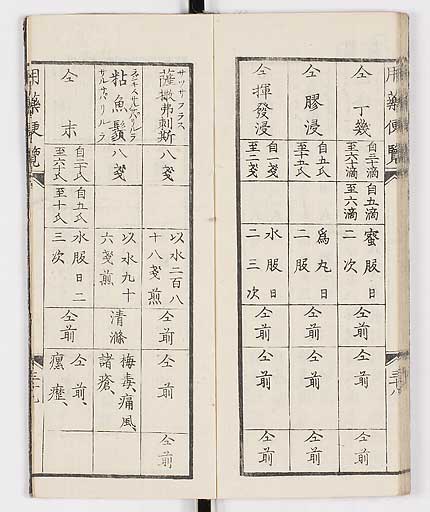 用藥便覽
三十八
仝 丁幾
自三十滴
至六十滴
自五滴
至六滴
蜜服日
二次
仝前
仝前
仝前
仝 膠浸
自五氏
至十五氏
為丸日
二服
仝前
仝前
仝前
仝 揮發浸
自一戔
至二戔
水服日
二三次
仝前
仝前
仝前
サツサフラス
薩撒弗剌斯
八戔
以水二百八
十八戔煎
仝前
仝前
仝前
粘魚鬚
八戔
以水九十
六戔煎
清滌
梅毒、痛風、
諸瘡、
仝 末
至六十氏
自五氏
至十氏
水服日二
三次
仝前
仝前、
瘰癧、
用藥便覽
三十九